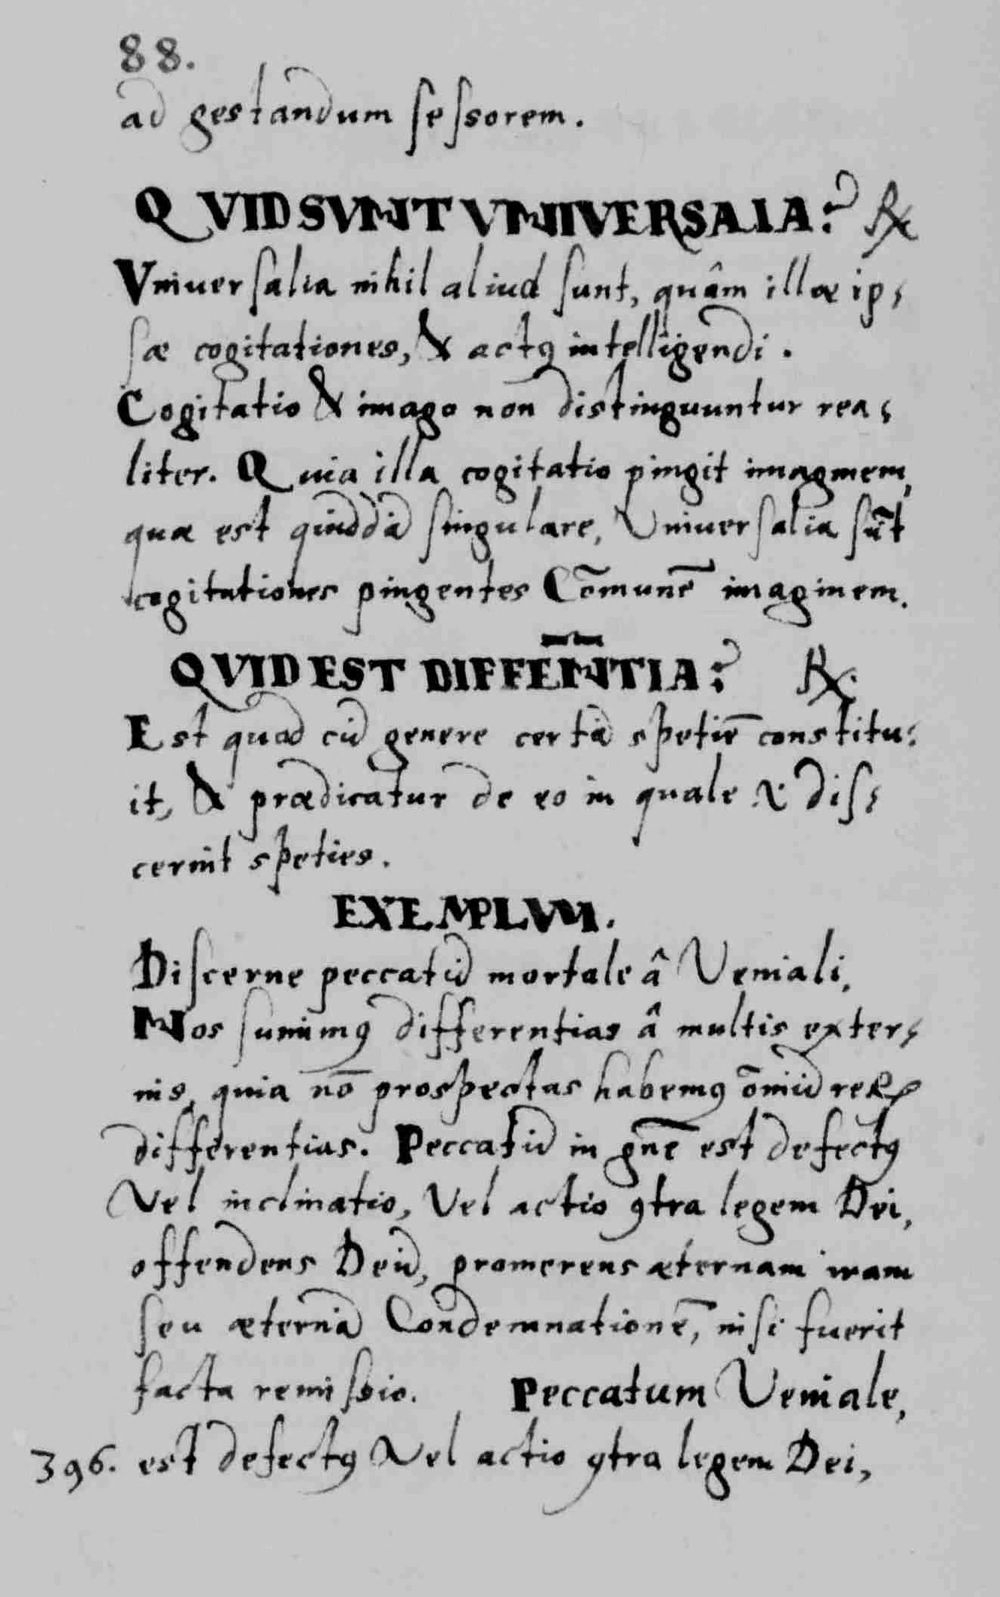 88.
ad gestandum seſsorem.
QVID SVNT VNIVERSALIA? ℞
Vniuerſalia nihil aliud ſunt, quâm illæ ip⸗
ſæ cogitationes, & actꝰ intelligendi.
Cogitatio & imago non distinguuntur rea⸗
liter. Quia illa cogitatio pingit imaginem,
quæ est quiddã ſingulare, Vniuerſalia sũt
cogitationes pingentes Com̃unẽ imaginem.
QVID EST DIFFEÑTIA? ℞.
Est quod cũ genere certã spetiẽ constitu⸗
it, & prædicatur de eo in quale & diſ⸗
cernit speties.
EXEMPLVM.
Diſcerne peccatũ mortale â Veniali,
Nos sumimꝰ differentias â multis exter⸗
nis, quia nõ prospectas habemꝰ õmiũ reꝝ
differentias. Peccatũ in gñe est defectꝰ
Vel inclinatio, Vel actio ꝯtra legem Dei,
offendens Deũ, promerens æternam iram
ſeu æternã Condemnationẽ, niſi fuerit
facta remiſsio. Peccatum Veniale,
396. est defectꝰ Vel actio ꝯtra legem Dei,